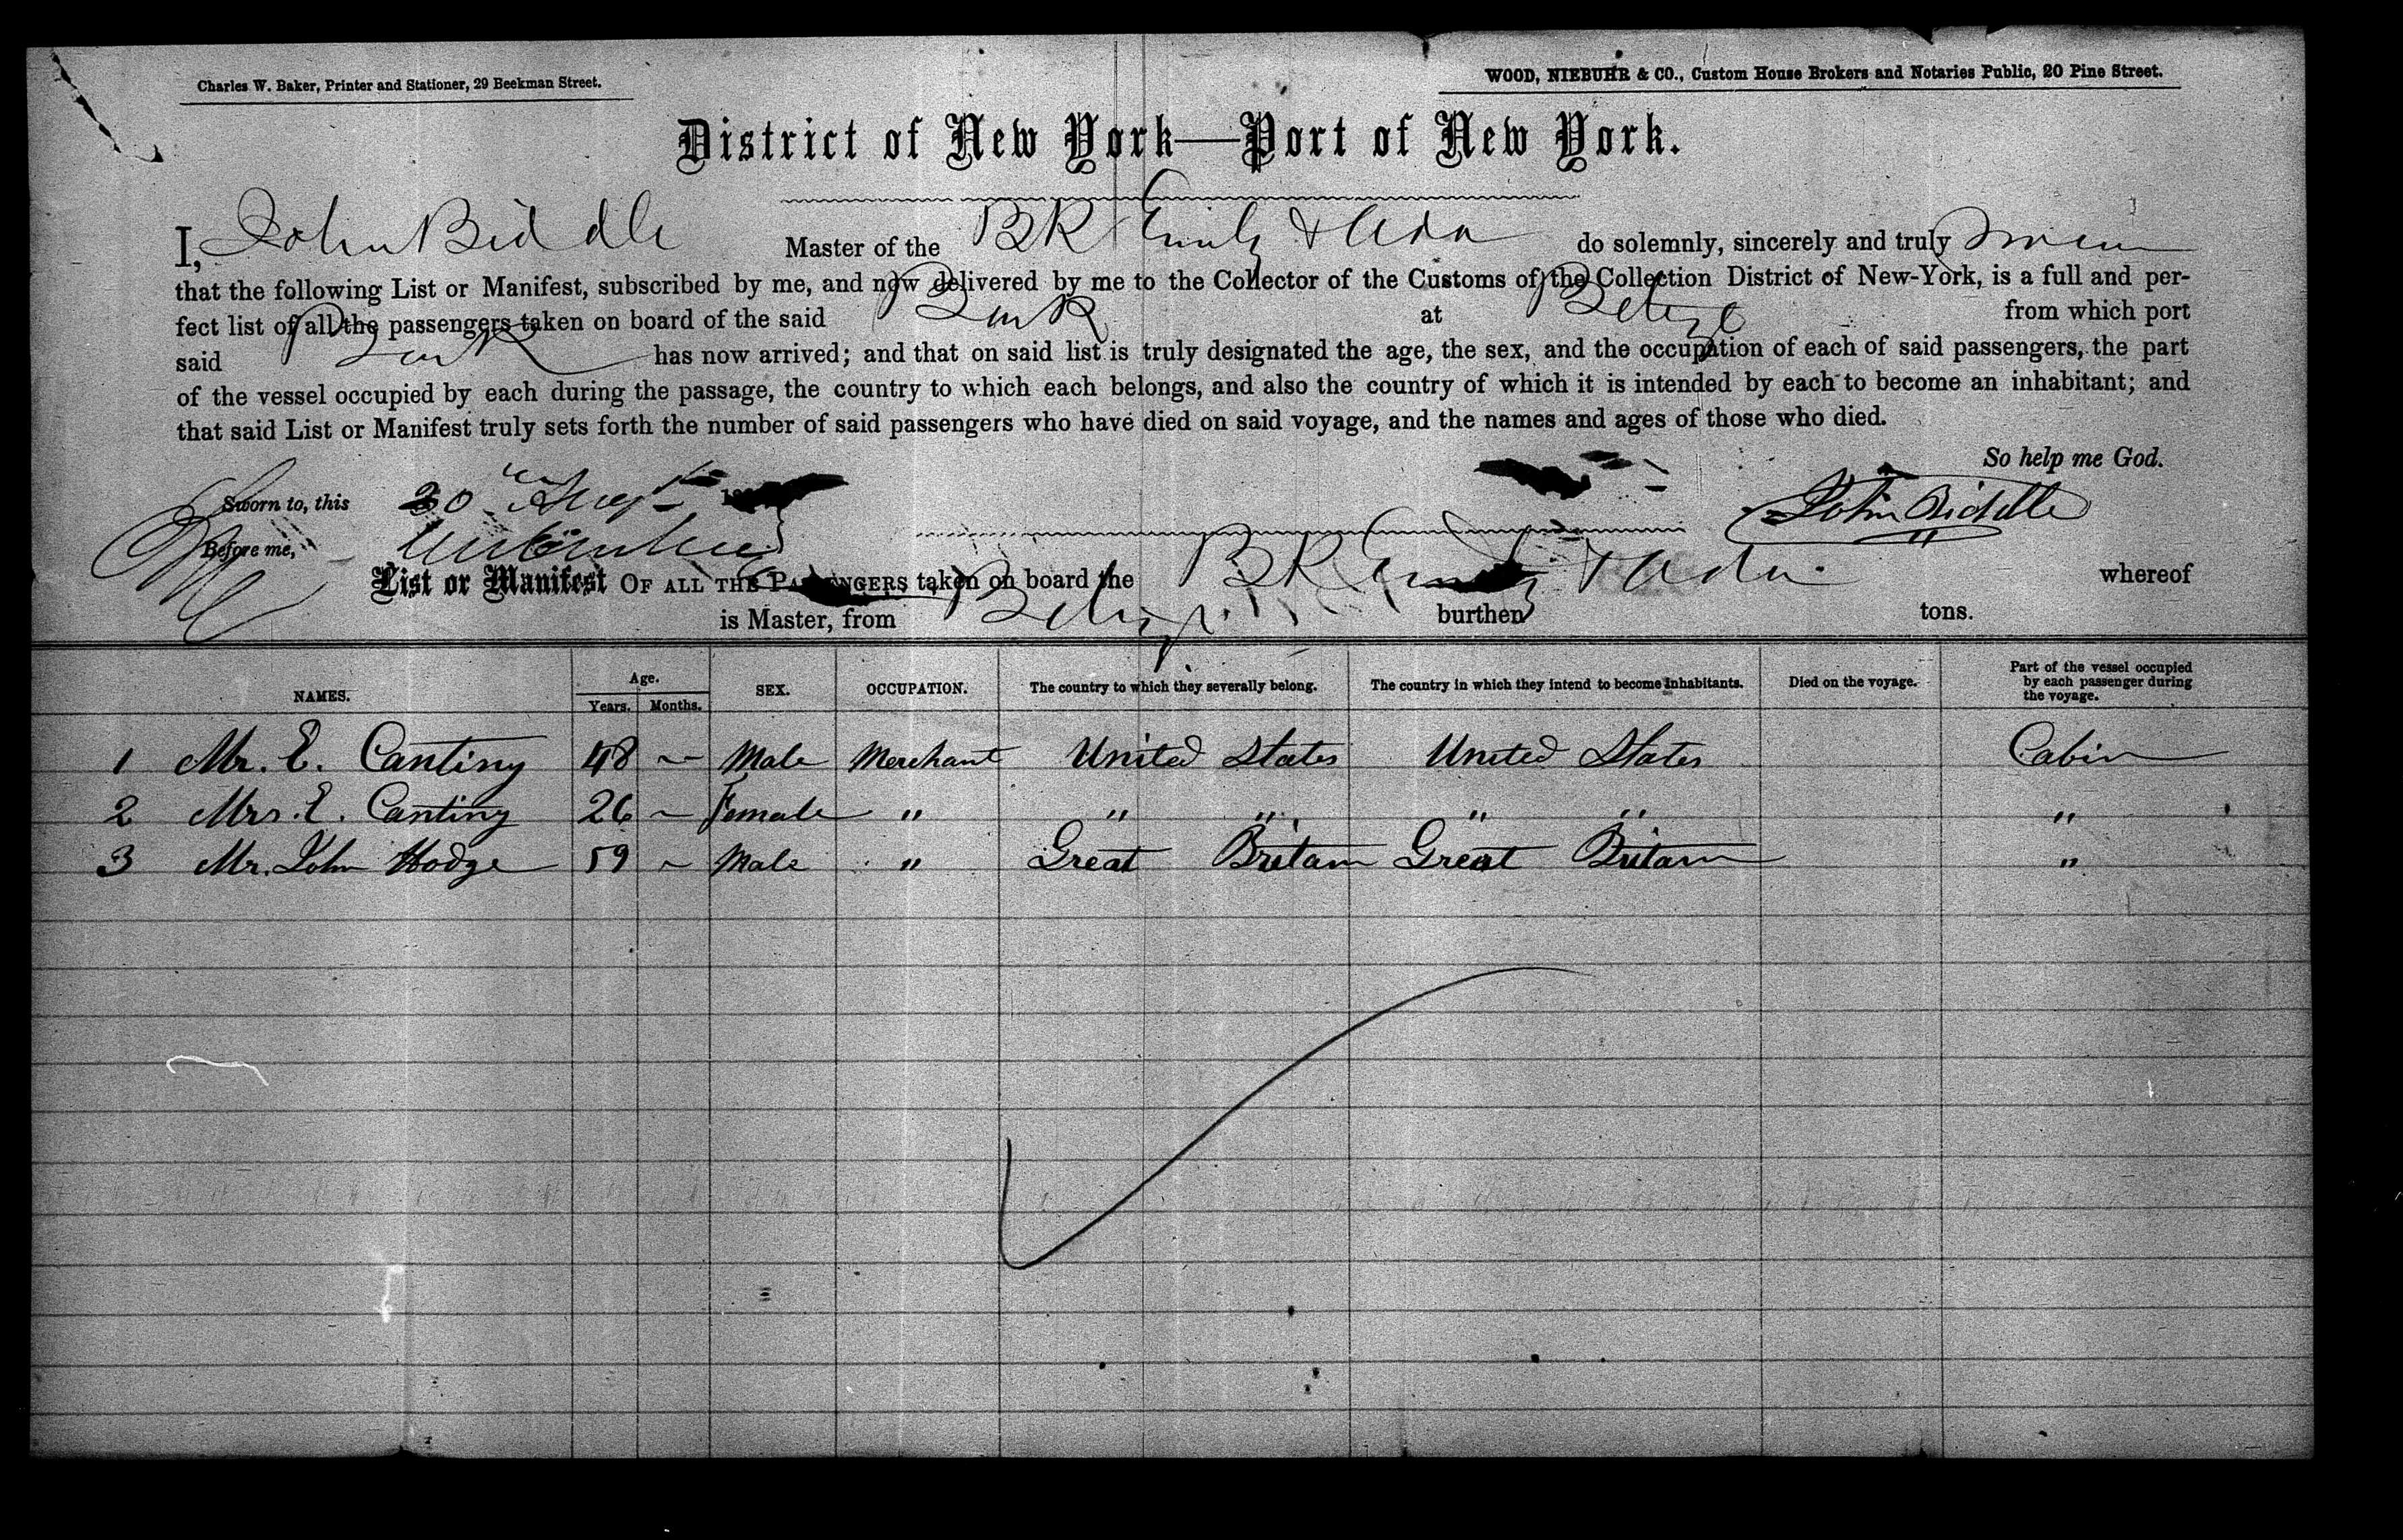 Charles W. Baker, Printer and Stationer, 29 Beekman Street.
WOOD, NIEBUHR & CO., Custom House Brokers and Notaries Public, 20 Pine Street.
District of New York—Port of New York.
I, John Biddle Master of the BK Emily & Ada do solemnly, sincerely and truly Swear
that the following List or Manifest, subscribed by me, and now delivered by me to the Collector of the Customs of the Collection District of New-York, is a full and per-
fect list of all the passengers taken on board of the said Bark at Belize from which port
said Bark has now arrived; and that on said list is truly designated the age, the sex, and the occupation of each of said passengers, the part
of the vessel occupied by each during the passage, the country to which each belongs, and also the country of which it is intended by each to become an inhabitant; and
that said List or Manifest truly sets forth the number of said passengers who have died on said voyage, and the names and ages of those who died.
So help me God.
Sworn to, this 30
John Biddle
Before me,
List or Manifest OF ALL THE PASSENGERS taken on board the BK Emily & Ada whereof
is Master, from Belize burthen tons.
NAMES. Age. Years. Months. SEX. OCCUPATION. The country to which they severally belong. The country in which they intend to become inhabitants. Died on the voyage. Part of the vessel occupied by each passenger during the voyage.
1 Mr. E. Cantiny 48 ~ Male Merchant United States United States Cabin
2 Mrs. E. Cantiny 26 ~ Female " " " " " "
3 Mr. John Hodge 59 ~ Male " Great Britain Great Britain "